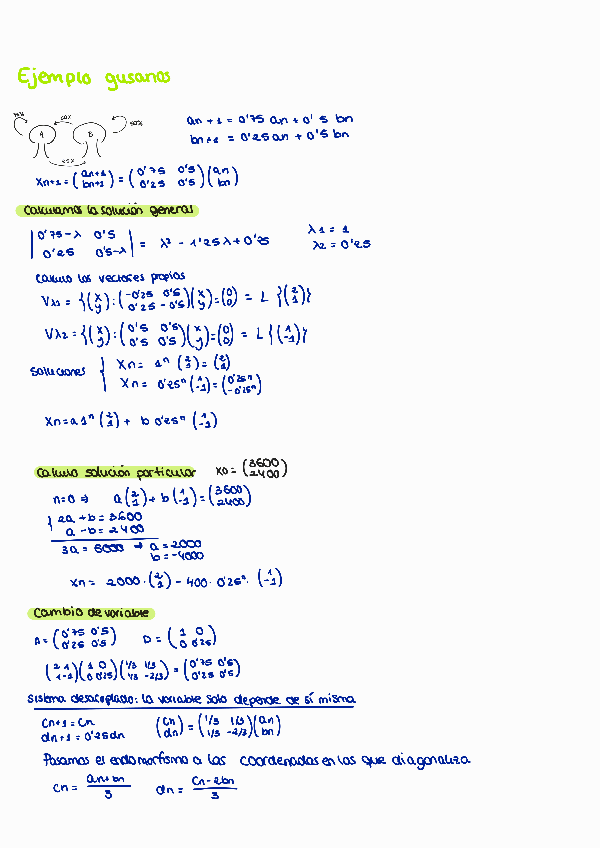 Ejemplo gusanos
75% 50% 50%
A B
25%
an+1 = 0'75 an + 0'5 bn
bn+1 = 0'25 an + 0'5 bn
Xn+1 = (an+1 bn+1) = (0'75 0'5 0'25 0'5)(an bn)
Calculamos la solución general
|0'75-λ 0'5 0'25 0'5-λ| = λ² - 1'25λ + 0'25
λ1 = 1
λ2 = 0'25
Calculo los vectores propios
Vλ1 = {(x y) : (-0'25 0'5 0'25 -0'5)(x y) = (0 0)} = L {(2 1)}
Vλ2 = {(x y) : (0'5 0'5 0'5 0'5)(x y) = (0 0)} = L {(1 -1)}
Soluciones { Xn = 1ⁿ (2 1) = (2 1)
Xn = 0'25ⁿ (1 -1) = (0'25ⁿ -0'25ⁿ)
Xn = a 1ⁿ (2 1) + b 0'25ⁿ (1 -1)
Calculo solución particular X0 = (3600 2400)
n=0 ⇒ a (2 1) + b (1 -1) = (3600 2400)
{ 2a + b = 3600
a - b = 2400
3a = 6000 → a = 2000
b = -4000
Xn = 2000 · (2 1) - 400 · 0'25ⁿ · (1 -1)
Cambio de variable
A = (0'75 0'5 0'25 0'5) D = (1 0 0 0'25)
(2 1 1 -1)(1 0 0 0'25)(1/3 1/3 1/3 -2/3) = (0'75 0'5 0'25 0'5)
Sistema desacoplado: la variable solo depende de sí misma
Cn+1 = Cn
dn+1 = 0'25dn
(Cn dn) = (1/3 1/3 1/3 -2/3)(an bn)
Pasamos el endomorfismo a las coordenadas en las que diagonaliza
Cn = an+bn / 3 dn = Cn-2bn / 3